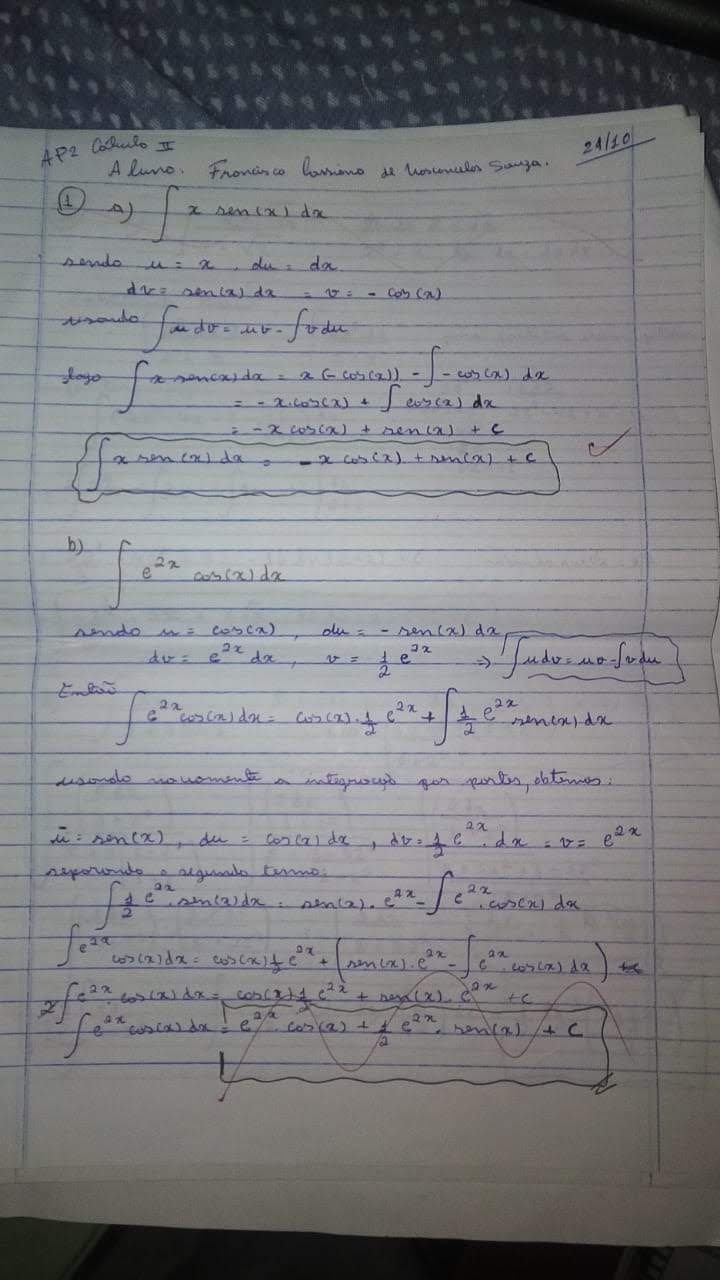 AP2 Cálculo II
21/10
Aluno. Francisco de Souza.
1 a) ∫ x sen(x) dx
sendo u = x, du = dx
dv = sen(x) dx = v = - cos(x)
usando ∫u dv = uv - ∫v du
logo ∫ x sen(x) dx = x (-cos(x)) - ∫ - cos(x) dx
= - x.cos(x) + ∫ cos(x) dx
= - x cos(x) + sen(x) + c
∫ x sen(x) dx = - x cos(x) + sen(x) + c
b) ∫ e^{2x} cos(x) dx
sendo u = cos(x), du = - sen(x) dx
dv = e^{2x} dx, v = 1/2 e^{2x} => ∫u dv = uv - ∫v du
Então
∫ e^{2x} cos(x) dx = cos(x) . 1/2 e^{2x} + ∫ 1/2 e^{2x} sen(x) dx
usando novamente a integração por partes, obtemos:
ū = sen(x), du = cos(x) dx, dv = 1/2 e^{2x} . dx = v = e^{2x}
o segundo termo:
∫ 1/2 e^{2x} . sen(x) dx = sen(x) . e^{2x} - ∫ e^{2x} . cos(x) dx
∫ e^{2x} cos(x) dx = cos(x) 1/2 e^{2x} + (sen(x) . e^{2x} - ∫ e^{2x} . cos(x) dx)
2∫ e^{2x} . cos(x) dx = cos(x) 1/2 e^{2x} + sen(x) . e^{2x} + c
∫ e^{2x} cos(x) dx = e^{2x} . cos(x) + 1/2 e^{2x} . sen(x) + c